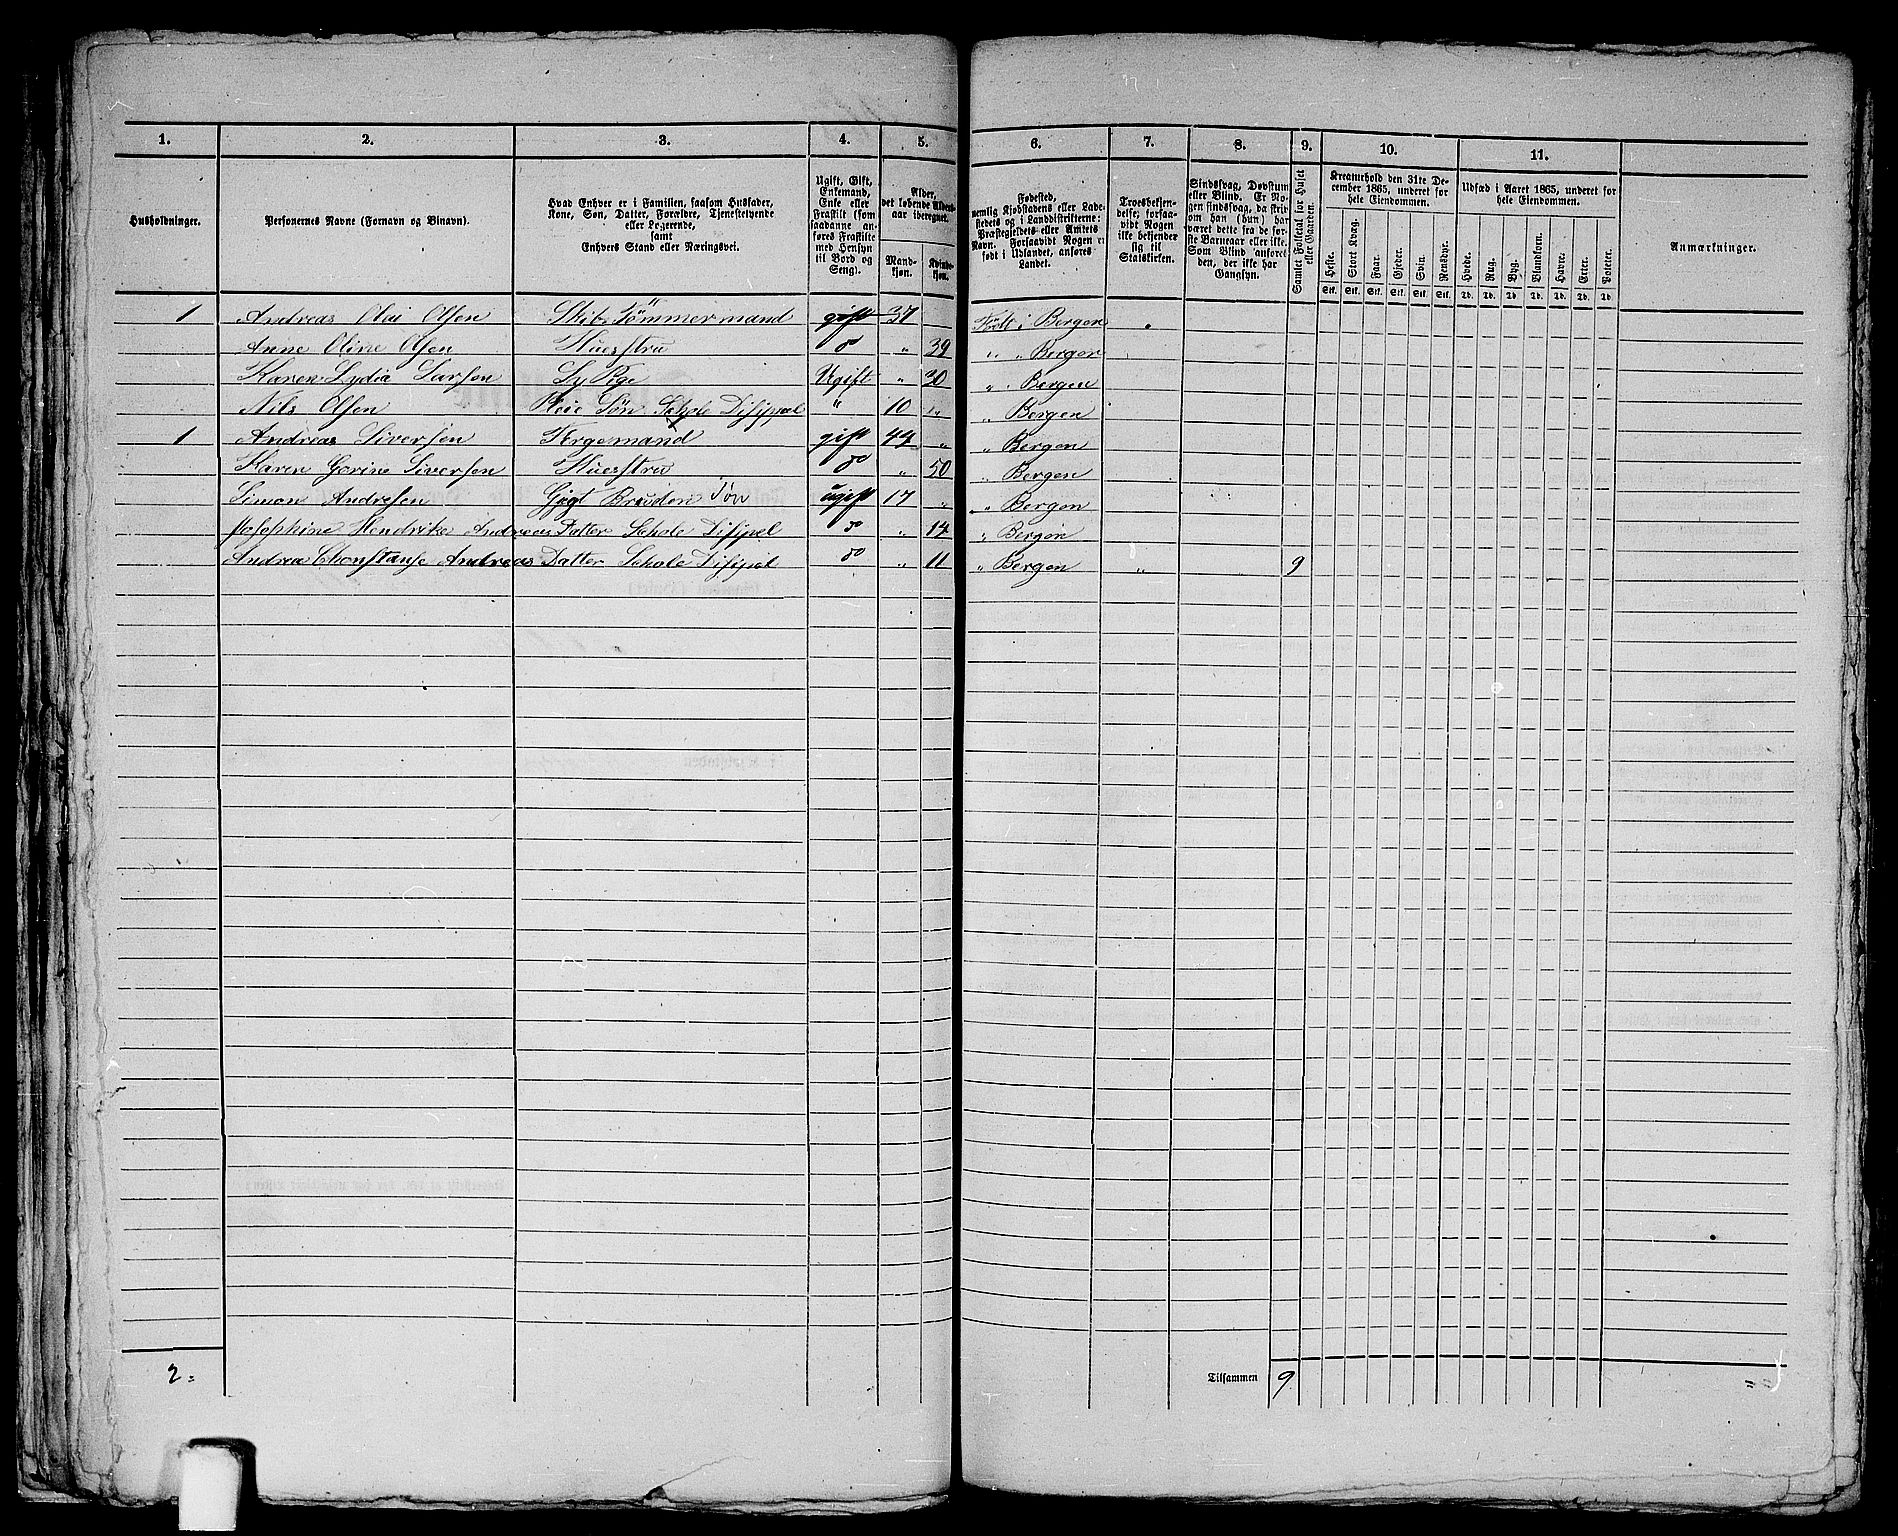 1. 2. 3. 4. 5. 6. 7. 8. 9. 10. 11.
Husholdninger.
Personernes Navne (Fornavn og Binavn).
Hvad Enhver er i Familien, saasom Husfader,
Kone, Søn, Datter, Forældre, Tjenestetyende
eller Logerende,
samt
Enhvers Stand eller Næringsvei.
Ugift, Gift,
Enkemand,
Enke eller
Fraskilt (som
saadanne an-
føres Fraskilte
med Hensyn
til Bord og
Seng).
Alder,
det løbende Alders-
aar iberegnet.
Mand-
kjøn.
Kvinde-
kjøn.
Fødested,
nemlig Kjøbstadens eller Lade-
stedets og i Landdistrikterne:
Præstegjeldets eller Amtets
Navn. Forsaavidt Nogen er
født i Udlandet, anføres
Landet.
Troesbekjen-
delse, forsaa-
vidt Nogen
ikke bekjender
sig til
Statskirken.
Sindssvag, Døvstum
eller Blind. Er No-
gen sindssvag, da skrives
om han (hun) har
været dette fra de før-
ste Barneaar eller ikke.
Som Blind anføres
den, der ikke har
Gangsyn.
Samlet Folketal for Huset
eller Gaarden.
Kreaturhold den 31te De-
cember 1865, underet for
hele Eiendommen.
Heste. Stort Kvæg. Faar. Gjeder. Svin. Rensdyr.
Stk. Stk. Stk. Stk. Stk. Stk.
Udsæd i Aaret 1865, underet for
hele Eiendommen.
Hvede. Rug. Byg. Blandkorn. Havre. Erter. Poteter.
Td. Td. Td. Td. Td. Td. Td.
Anmærkninger.
1 Andreas Olai Olsen Skibs Tømmermand gift 37 Født i Bergen
Anne Olive Olsen Huusstru do " 39 " " Bergen
Karen Lydia Larsen Sy Pige Ugift " 30 " " Bergen
Nils Olsen Pleie Søn Skole Disipel " 10 " " Bergen
1 Andreas Siversen Førgemand gift 44 " " Bergen
Karen Gorine Siversen Huusstru do " 50 " Bergen
Simon Andresen Søn ugift 17 " " Bergen
Josephine Hendrike Andreas Datter Skole Disipel do " 14 " Bergen
Andrea Chonstanse Andreas Datter Skole Disipel do " 11 " Bergen " 9
2 =
Tilsammen 9 " "